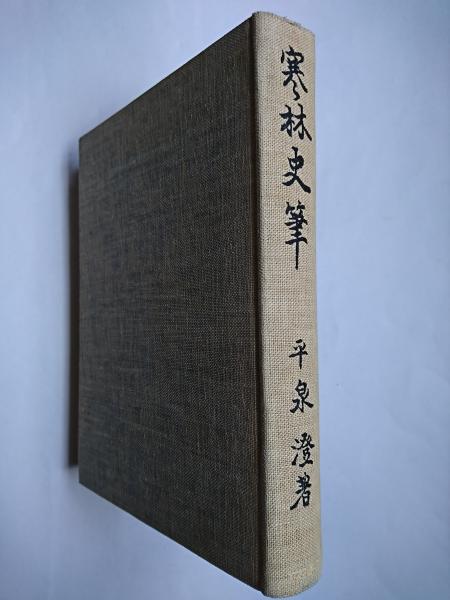 寒林史筆
平泉澄著